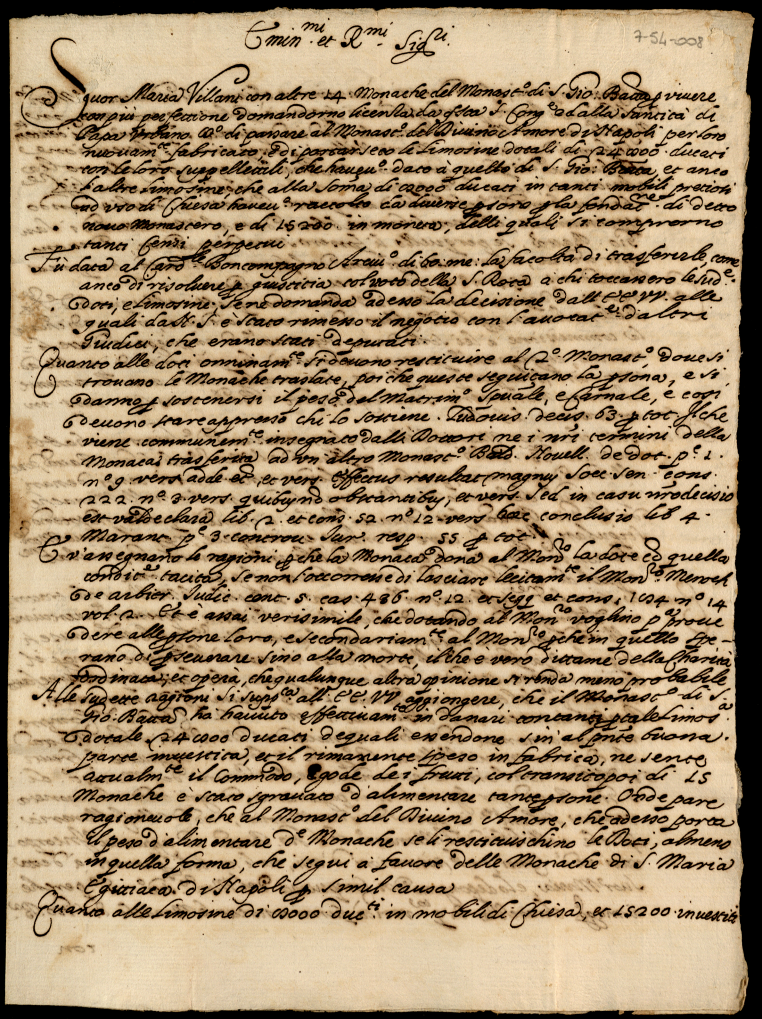 754-008
Emin.mi et R.mi Sig.ri
Suor Maria Villani con altre 14 Monache del Monast.o di S. Gio: Batta p vivere
con più perfettione domandorno licenza da S. Cong.e e dalla Santità di
Papa Urbano di passare al Monast.o del Divino Amore di Napoli per loro
nuovam.te fabricato, e di portar seco le limosine dotali di 24000 ducati
con le loro suppellettili, che haveu.o dato à quello di S. Gio: Batta, et anco
l'altre limosine, che alla soma di ducati in tanti mobili pretiosi
ad uso di Chiesa haveu.o raccolto da diverse psone p la fondat.ne di detto
novo Monastero, e di 15200 in moneta, delli quali si comprorno
tanti Censi perpetui
Fù data al Card.le Boncompagno Arciv.o di bo: me: la facoltà di trasferirle, come
anco di risolvere p giustitia col voto della S. Rota à chi toccassero le sud.e
doti, e limosine. Se ne domanda adesso la decisione dall' EE VV alle
quali da N. S. è stato rimesso il negotio con l'avocat.e d'altri
Giudici, che erano stati deputati
Quanto alle doti onninam.te si devono restituire al 2.o Monast.o dove si
trovano le Monache traslate, poi che queste seguitano la psona, e si
danno p sostenersi il peso del Matrim.o Spuale, e Carnale, e così
devono stare appresso chi lo sostiene. Ludovis. decis. 63. p tot. Il che
viene communem.te insegnato dalli Dottori ne i nri termini della
Monaca trasferita ad un altro Monast.o Bald. Novell. de dot. p.e 1.
n.o 9 vers. adde et et vers. effectus resultat magnus Soc. Sen. cons.
222. n.o 3. vers. quibus no obstantibus, et vers. Sed in casu nro decisio
est valde clara lib. 2. et cons. 52. n.o 12. vers. hac conclusio lib. 4.
Marant. p.e 3. controv. Jur. resp. 55 p tot.
E v'assegnano le ragioni, p che la Monaca dona al Mon.ro la dote cò quella
condit.e tacita, se non occorresse di lasciare lecitam.te il Mon.ro Menoch.
de arbitr. Judic. cent. 5. cas. 486. n.o 12. et seqq. et cons. n.o 14
vol. 2. Et è assai verisimile, che dotando al Mon.ro voglino p.a prove
dere alle psone loro, e secondariam.te al Mon.ro p che in quello spe-
rano di pseverare sino alla morte, il che è vero dittame della Charità
ordinata; et opera, che qualunque altra opinione si renda meno probabile
Alle sudette ragioni si supp.ca all' EE VV aggiongere, che il Monast.o di S.
Gio: Batta ha havuto effettivam.te in danari contanti p tale limos.a
dotale 24000 ducati de quali essendone sin al pnte buona
parte investita, et il rimanente speso in fabrica, ne sente
attualm.te il Commodo, e gode de i frutti, col transito poi di 15
Monache è stato sgravato d'alimentare tante psone. Onde pare
ragionevole, che al Monast.o del Divino Amore, che adesso porta
il peso d'alimentare d.e Monache se li restituischino le Doti, almeno
in quella forma, che seguì a favore delle Monache di S. Maria
Egittiaca di Napoli p simil causa
Quanto alle limosine di duc.ti in mobili di Chiesa, et 15200 investiti